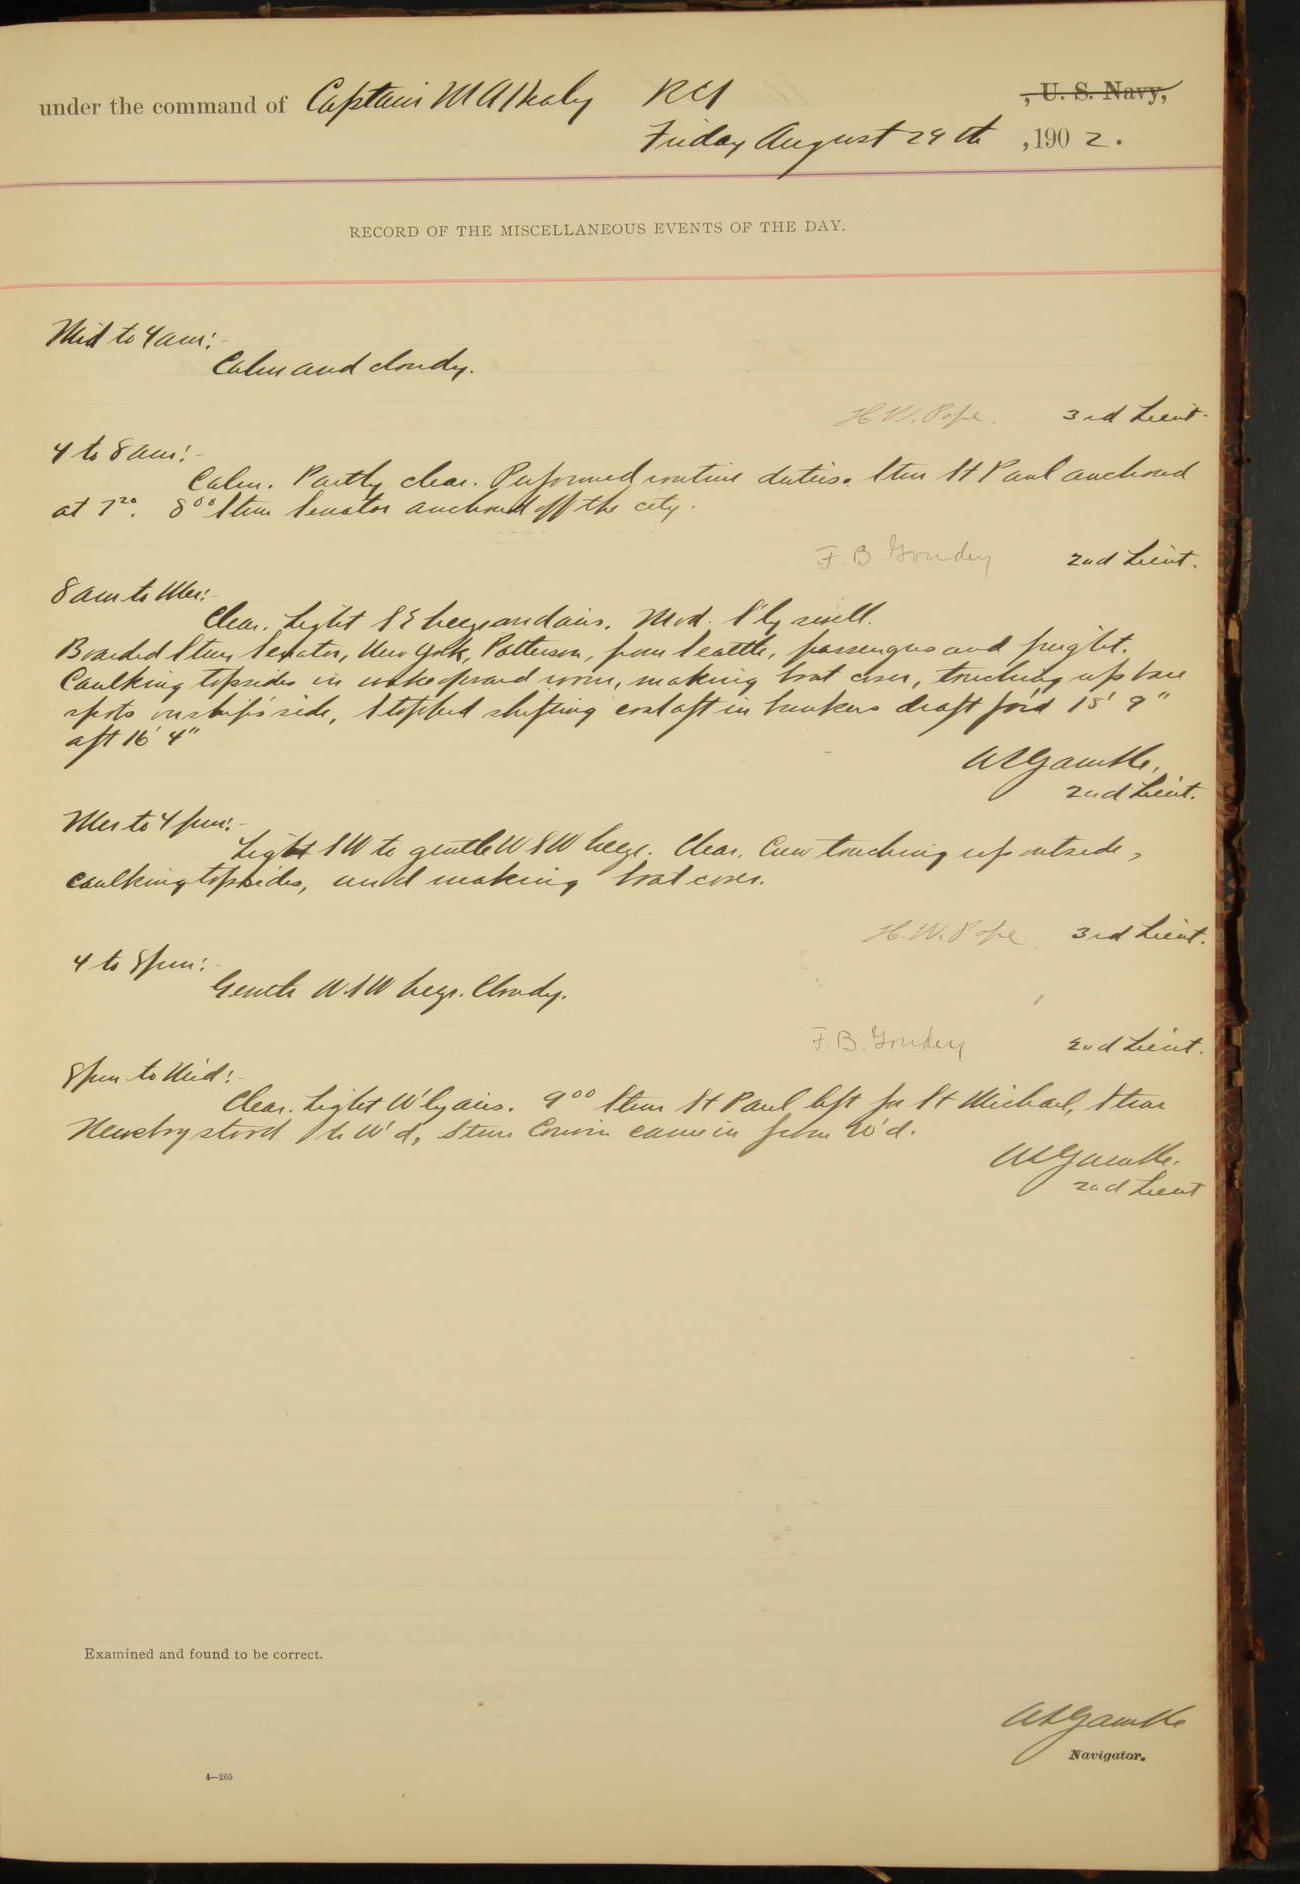 under the command of Captain M A Healy RCS , U. S. Navy,
Friday August 29th , 1902.
RECORD OF THE MISCELLANEOUS EVENTS OF THE DAY.
Mid to 4 am:-
Calm and cloudy.
H. W. Pope. 3rd Lieut.
4 to 8 am:-
Calm. Partly clear. Performed routine duties. Stmr St Paul anchored
at 7²⁰. 8⁰⁰ Stmr Senator anchored off the city.
F. B. Goudey 2nd Lieut.
8 am to Mer:-
Clear. Light SE breeze and airs. Mod. S'ly swell.
Boarded Stmr Senator, New York, Patterson, from Seattle, passengers and freight.
Caulking topsides in room, making boat cover, touching up bare
spots on ship's side, Stopped shifting coal aft in bunkers draft for'd 15' 9"
aft 16' 4"
2nd Lieut.
Mer to 4 pm:-
Light SW to gentle WSW breeze. Clear. Crew touching up outside,
caulking topsides, and making boat cover.
H. W. Pope 3rd Lieut.
4 to 8 pm:-
Gentle WSW breeze. Cloudy.
F. B. Goudey 2nd Lieut.
8 pm to Mid:-
Clear. Light W'ly airs. 9⁰⁰ Stmr St Paul left for St Michael, Stmr
stood to W'd, Stmr Corwin came in from W'd.
2nd Lieut
Examined and found to be correct.
Navigator.
4—265